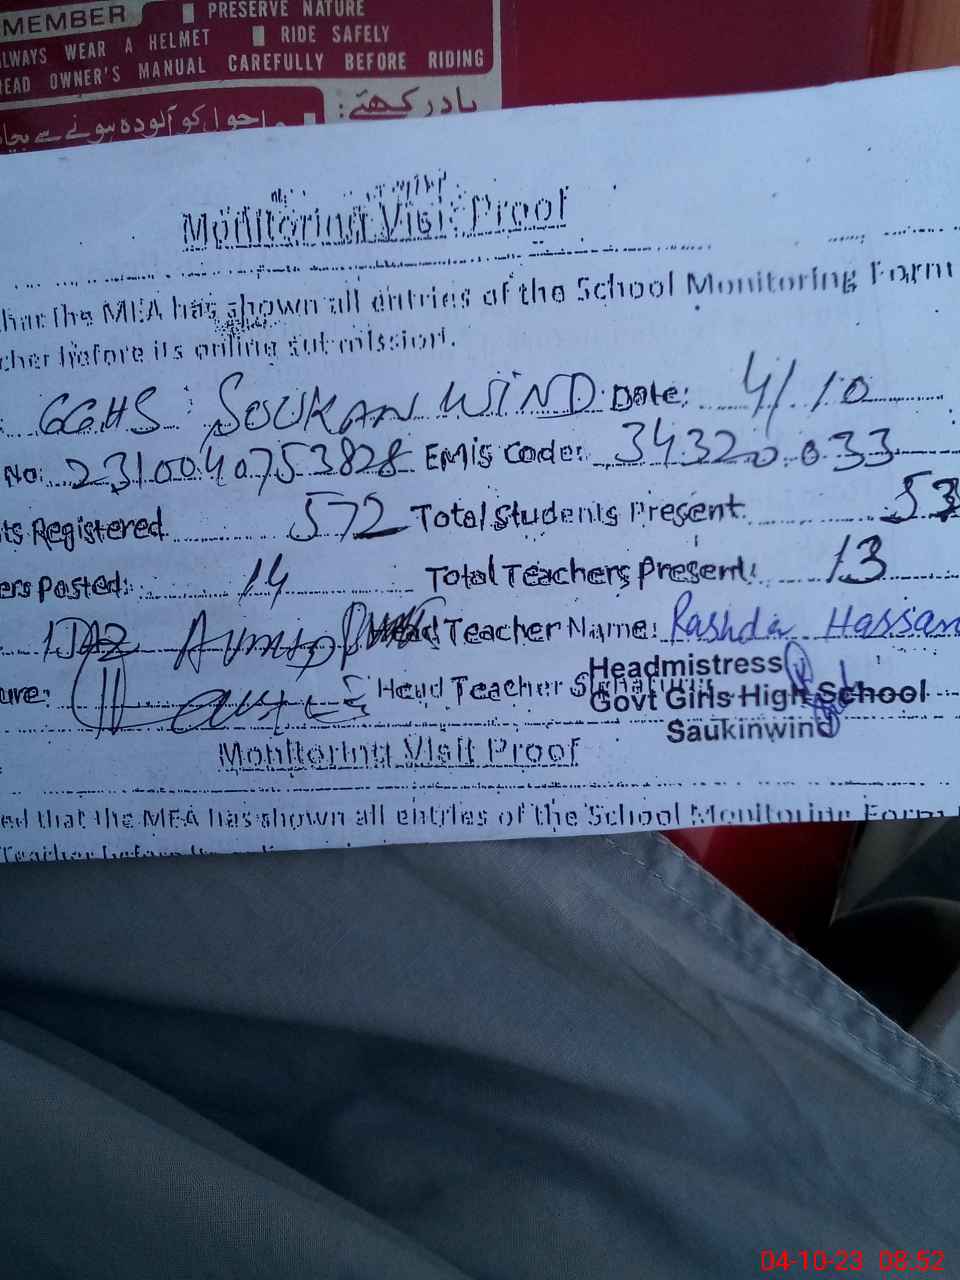 MEMBER ■ PRESERVE NATURE
ALWAYS WEAR A HELMET ■ RIDE SAFELY
EAD OWNER'S MANUAL CAREFULLY BEFORE RIDING
یادرکھئے:
ماحول کو آلودہ ہونے سے بچا
Monitoring Visit Proof
that the MEA has shown all entries of the School Monitoring Form
cher before its online submission.
GGHS SOUKAN WIND Date: 4/10
No: 231004075 3828 EMIS Code: 34320033
ts Registered 572 Total Students Present 53
ers Posted: 14 Total Teachers Present: 13
IJAZ Head Teacher Name: Rashda Hassan
ure: Head Teacher Signature
Headmistress
Govt Girls High School
Saukinwind
Monitoring Visit Proof
ed that the MEA has shown all entries of the School Monitoring Form
Teacher before
04-10-23 08:52